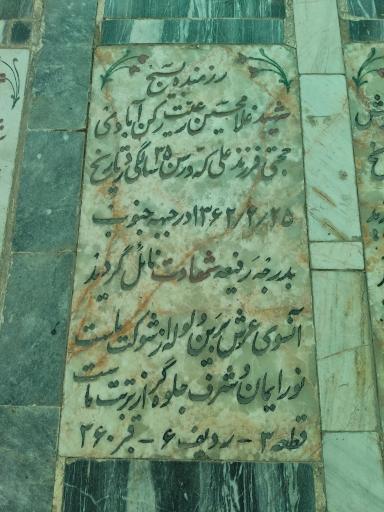 رزمنده بسیج
شهید غلامحسین رکن آبادی
حجتی فرزند علی که در سن ۲۵ سالگی در تاریخ
۱۳۶۲/۲/۲۵ در جبهه جنوب
بدرجه رفیعه شهادت نائل گردید
آنسوی عرش برین ولوله از شوکت ماست
نور ایمان و شرف جلوه گر از تربت ماست
قطعه ۳ - ردیف ۶ - قبر ۲۶۰